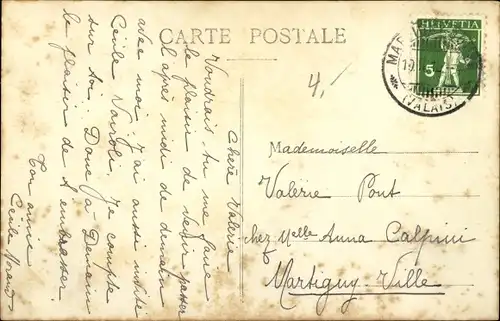 CARTE POSTALE
HELVETIA
5
(VALAIS)
4.-
Chère Valérie
Voudrais-tu me faire
le plaisir de venir passer
l'après midi de demain
avec moi. J'ai aussi invité
Cécile Je compte
sur toi. Donc à Demain
le plaisir de t'embrasser.
Ton amie
Cécile Morand
Mademoiselle
Valérie Pont
chez Melle Anna Calpini
Martigny-Ville